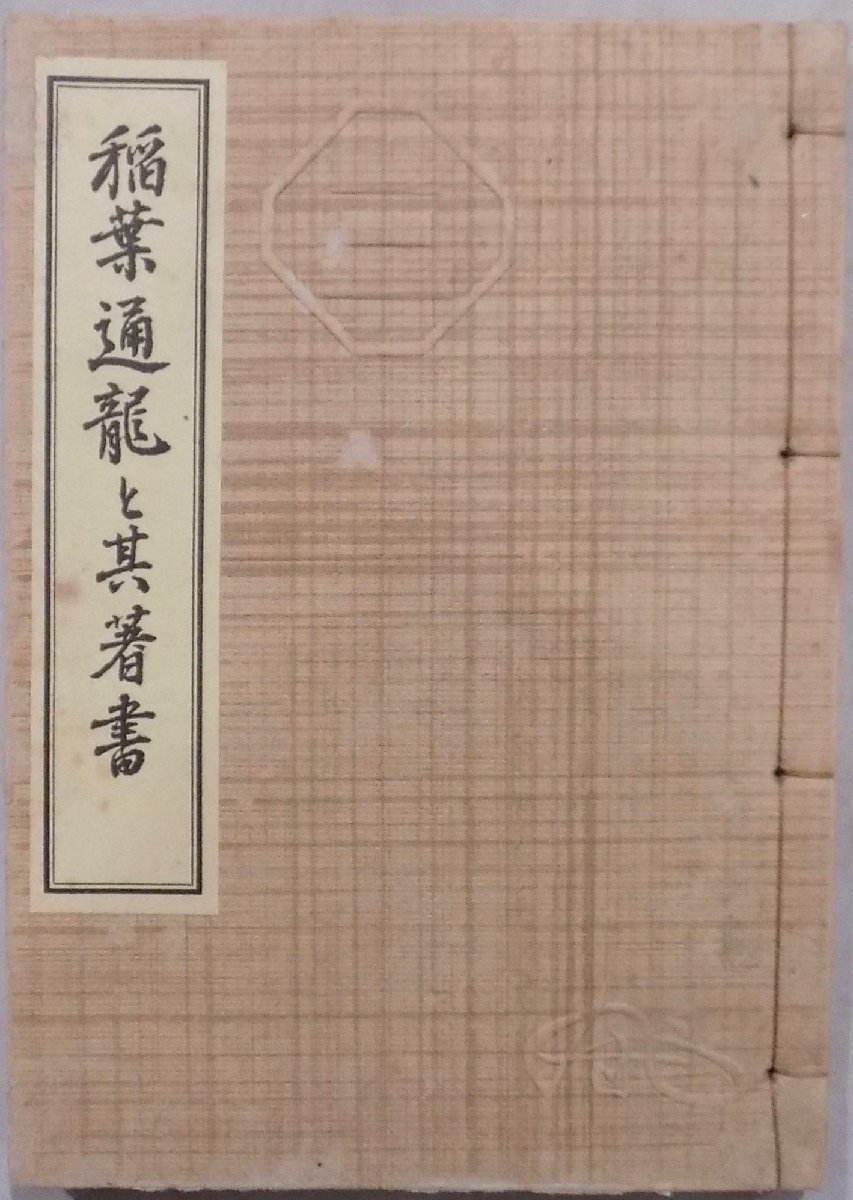 稲葉通龍と其著書